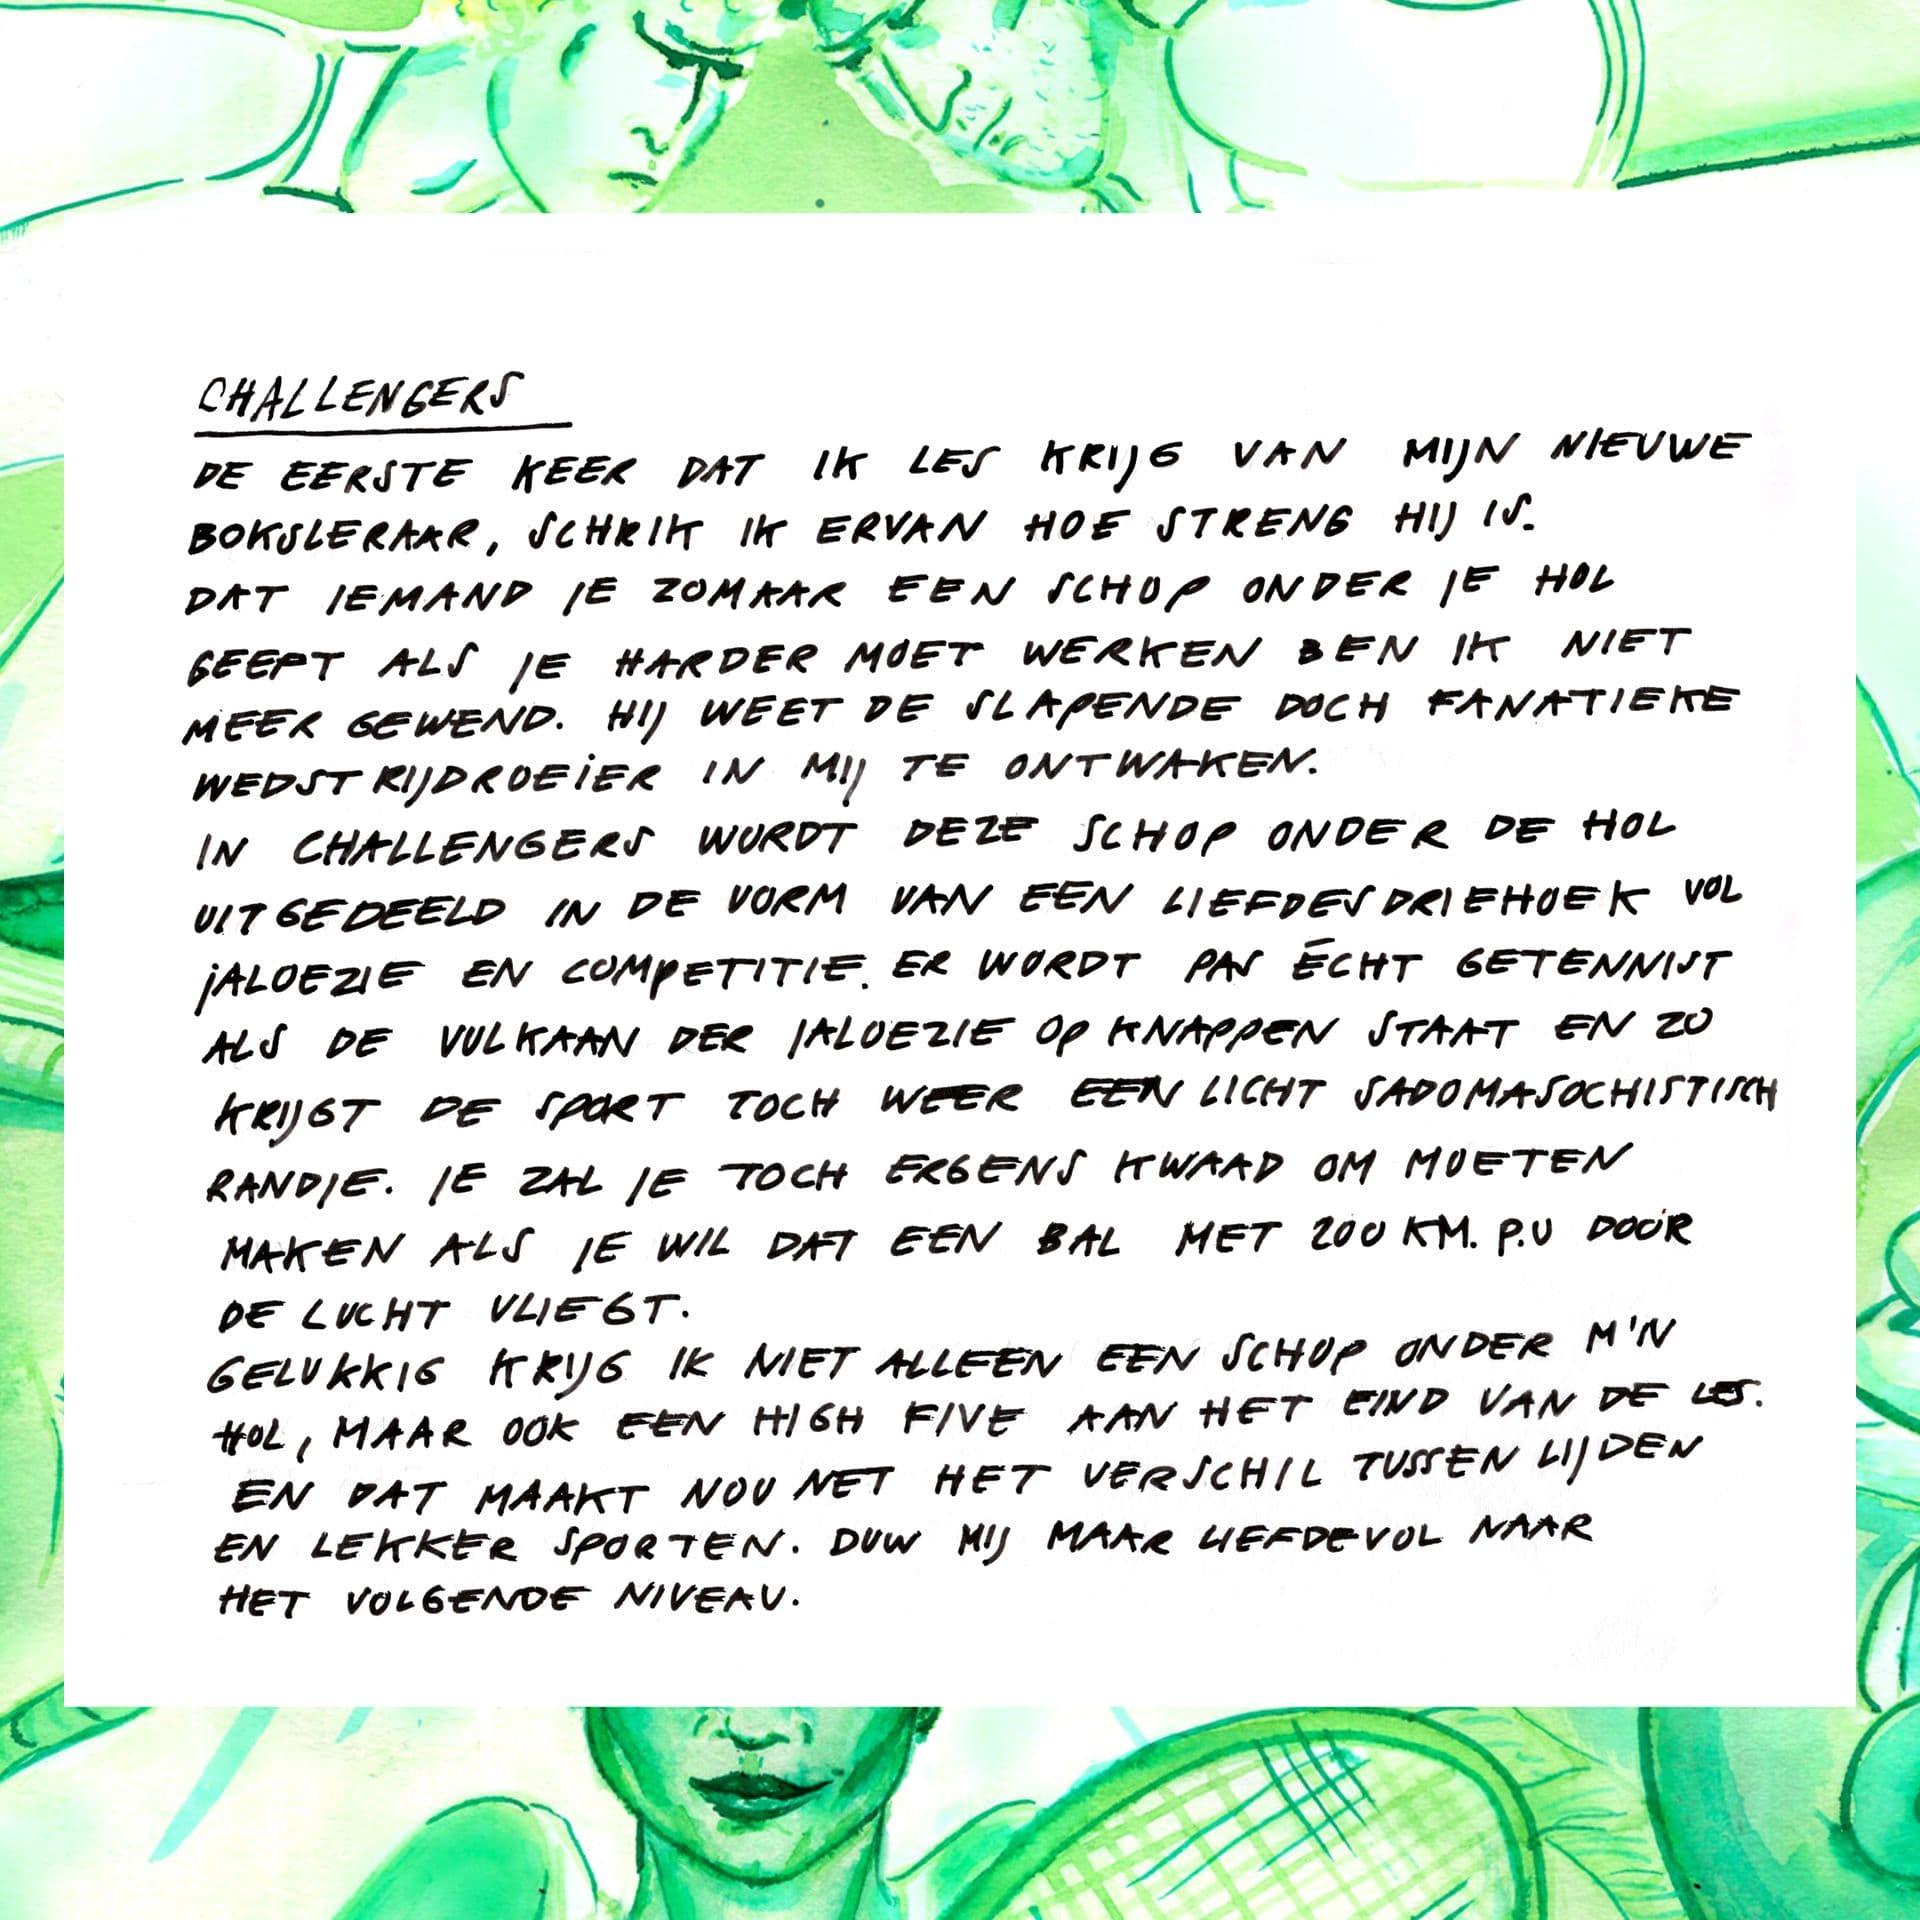 CHALLENGERS
DE EERSTE KEER DAT IK LES KRIJG VAN MIJN NIEUWE
BOKSLERAAR, SCHRIK IK ERVAN HOE STRENG HIJ IS.
DAT IEMAND JE ZOMAAR EEN SCHOP ONDER JE HOL
GEEFT ALS JE HARDER MOET WERKEN BEN IK NIET
MEER GEWEND. HIJ WEET DE SLAPENDE DOCH FANATIEKE
WEDSTRIJDROEIER IN MIJ TE ONTWAKEN.
IN CHALLENGERS WORDT DEZE SCHOP ONDER DE HOL
UITGEDEELD IN DE VORM VAN EEN LIEFDESDRIEHOEK VOL
JALOEZIE EN COMPETITIE. ER WORDT PAS ÉCHT GETENNIST
ALS DE VULKAAN DER JALOEZIE OP KNAPPEN STAAT EN ZO
KRIJGT DE SPORT TOCH WEER EEN LICHT SADOMASOCHISTISCH
RANDJE. JE ZAL JE TOCH ERGENS KWAAD OM MOETEN
MAKEN ALS JE WIL DAT EEN BAL MET 200 KM. P.U DOOR
DE LUCHT VLIEGT.
GELUKKIG KRIJG IK NIET ALLEEN EEN SCHOP ONDER M'N
HOL, MAAR OOK EEN HIGH FIVE AAN HET EIND VAN DE LES.
EN DAT MAAKT NOU NET HET VERSCHIL TUSSEN LIJDEN
EN LEKKER SPORTEN. DUW MIJ MAAR LIEFDEVOL NAAR
HET VOLGENDE NIVEAU.